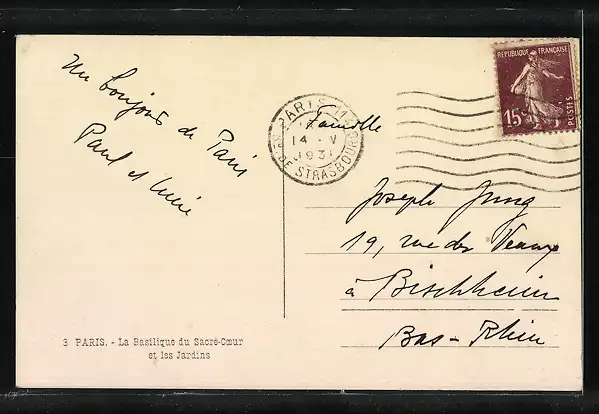 Un bonjour de Paris
Paul et
3 PARIS. - La Basilique du Sacré-Cœur
et les Jardins
PARIS
14 - V
1931
DE STRASBOURG
REPUBLIQUE FRANÇAISE
15c
POSTES
Famille
Joseph Jung
19, rue des Veaux
à Bischheim
Bas-Rhin